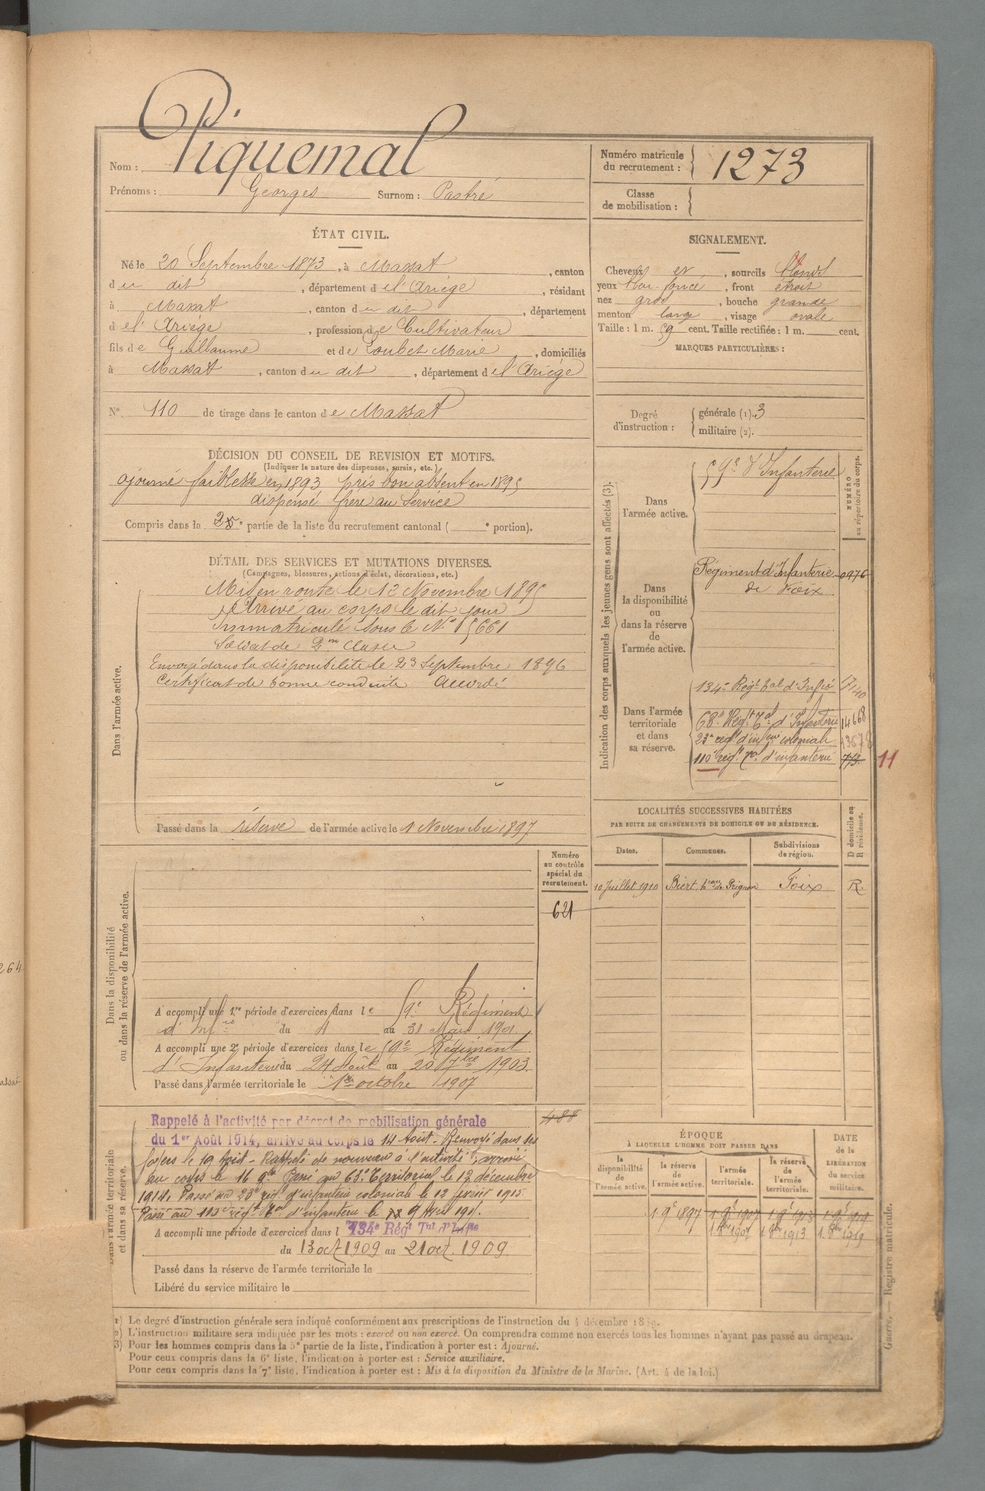 Nom : Piquemal
Prénoms : Georges Surnom : Pastré
Numéro matricule du recrutement : 1273
Classe de mobilisation :
ÉTAT CIVIL.
Né le 20 Septembre 1873, à Massat, canton
du dit, département de l'Ariège, résidant
à Massat, canton du dit, département
de l'Ariège, profession de Cultivateur
fils de Guillaume et de Loubet Marie, domiciliés
à Massat, canton du dit, département de l'Ariège
N° 110 de tirage dans le canton de Massat
SIGNALEMENT.
Cheveux et, sourcils blonds
yeux foncé, front étroit
nez gros, bouche grande
menton large, visage ovale
Taille : 1 m. 59 cent. Taille rectifiée : 1 m. cent.
MARQUES PARTICULIÈRES :
Degré d'instruction : générale (1). 3
militaire (2).
DÉCISION DU CONSEIL DE REVISION ET MOTIFS.
(Indiquer la nature des dispenses, sursis, etc.)
ajourné faiblesse en 1893 pris bon absent en 1895
dispensé frère au Service
Compris dans la 2e partie de la liste du recrutement cantonal ( e portion).
DÉTAIL DES SERVICES ET MUTATIONS DIVERSES.
(Campagnes, blessures, actions d'éclat, décorations, etc.)
Dans l'armée active.
Mis en route le 13 Novembre 1895
Arrivé au corps le dit jour
Immatriculé sous le N° 15661
Soldat de 2me classe
Envoyé dans la disponibilité le 23 Septembre 1896
Certificat de bonne conduite Accordé
Passé dans la réserve de l'armée active le 1 Novembre 1897
Indication des corps auxquels les jeunes gens sont affectés (3).
NUMÉRO au répertoire du corps.
Dans l'armée active. 59e d'Infanterie
Dans la disponibilité ou dans la réserve de l'armée active.
Régiment d'Infanterie de Foix 0976
Dans l'armée territoriale et dans sa réserve.
134e Régt tal d'Infie
68e Régt Tal d'Infanterie 14668
23e régt d'infrie coloniale
110e régt Tal d'infanterie
11
LOCALITÉS SUCCESSIVES HABITÉES
PAR SUITE DE CHANGEMENTS DE DOMICILE OU DE RÉSIDENCE.
Dates. Communes. Subdivisions de région. D domicile ou R résidence.
10 Juillet 1910 Biert Foix R.
Numéro au contrôle spécial du recrutement.
621
Dans la disponibilité ou dans la réserve de l'armée active.
A accompli une 1re période d'exercices dans le 59e Régiment
d'Infrie du 4 au 31 Mars 1901
A accompli une 2e période d'exercices dans le 59e Régiment
d'Infanterie du 24 Août au 20 7bre 1903
Passé dans l'armée territoriale le 1er octobre 1907
488
Dans l'armée territoriale et dans sa réserve.
Rappelé à l'activité par décret de mobilisation générale
du 1er Août 1914, arrivé au corps le 14 Août. Renvoyé dans ses
foyers le 19 Août. Rappelé de nouveau à l'activité & arrivé
au corps le 16 Passé au 68e Territorial le 17 décembre
1914. Passé au 23e régt d'infanterie coloniale le 12 février 1915
Passé au 110e régt Tal d'infanterie le 9 Avril 1915.
A accompli une période d'exercices dans l 134e Régt Tal d'Infie
du 13 oct 1909 au 21 oct. 1909.
Passé dans la réserve de l'armée territoriale le
Libéré du service militaire le
ÉPOQUE
À LAQUELLE L'HOMME DOIT PASSER DANS
la disponibilité de l'armée active. la réserve de l'armée active. l'armée territoriale. la réserve de l'armée territoriale.
DATE de la LIBÉRATION du service militaire.
1 9e 1897 1 9e 1907 1 9e 1913 1 9e 1919
1 8bre 1907 1 8bre 1913 1 8bre 1919
1) Le degré d'instruction générale sera indiqué conformément aux prescriptions de l'instruction du 4 décembre 1889.
2) L'instruction militaire sera indiquée par les mots : exercé ou non exercé. On comprendra comme non exercés tous les hommes n'ayant pas passé au drapeau.
3) Pour les hommes compris dans la 5e partie de la liste, l'indication à porter est : Ajourné.
Pour ceux compris dans la 6e liste, l'indication à porter est : Service auxiliaire.
Pour ceux compris dans la 7e liste, l'indication à porter est : Mis à la disposition du Ministre de la Marine. (Art. 4 de la loi.)
Guerre. — Registre matricule.